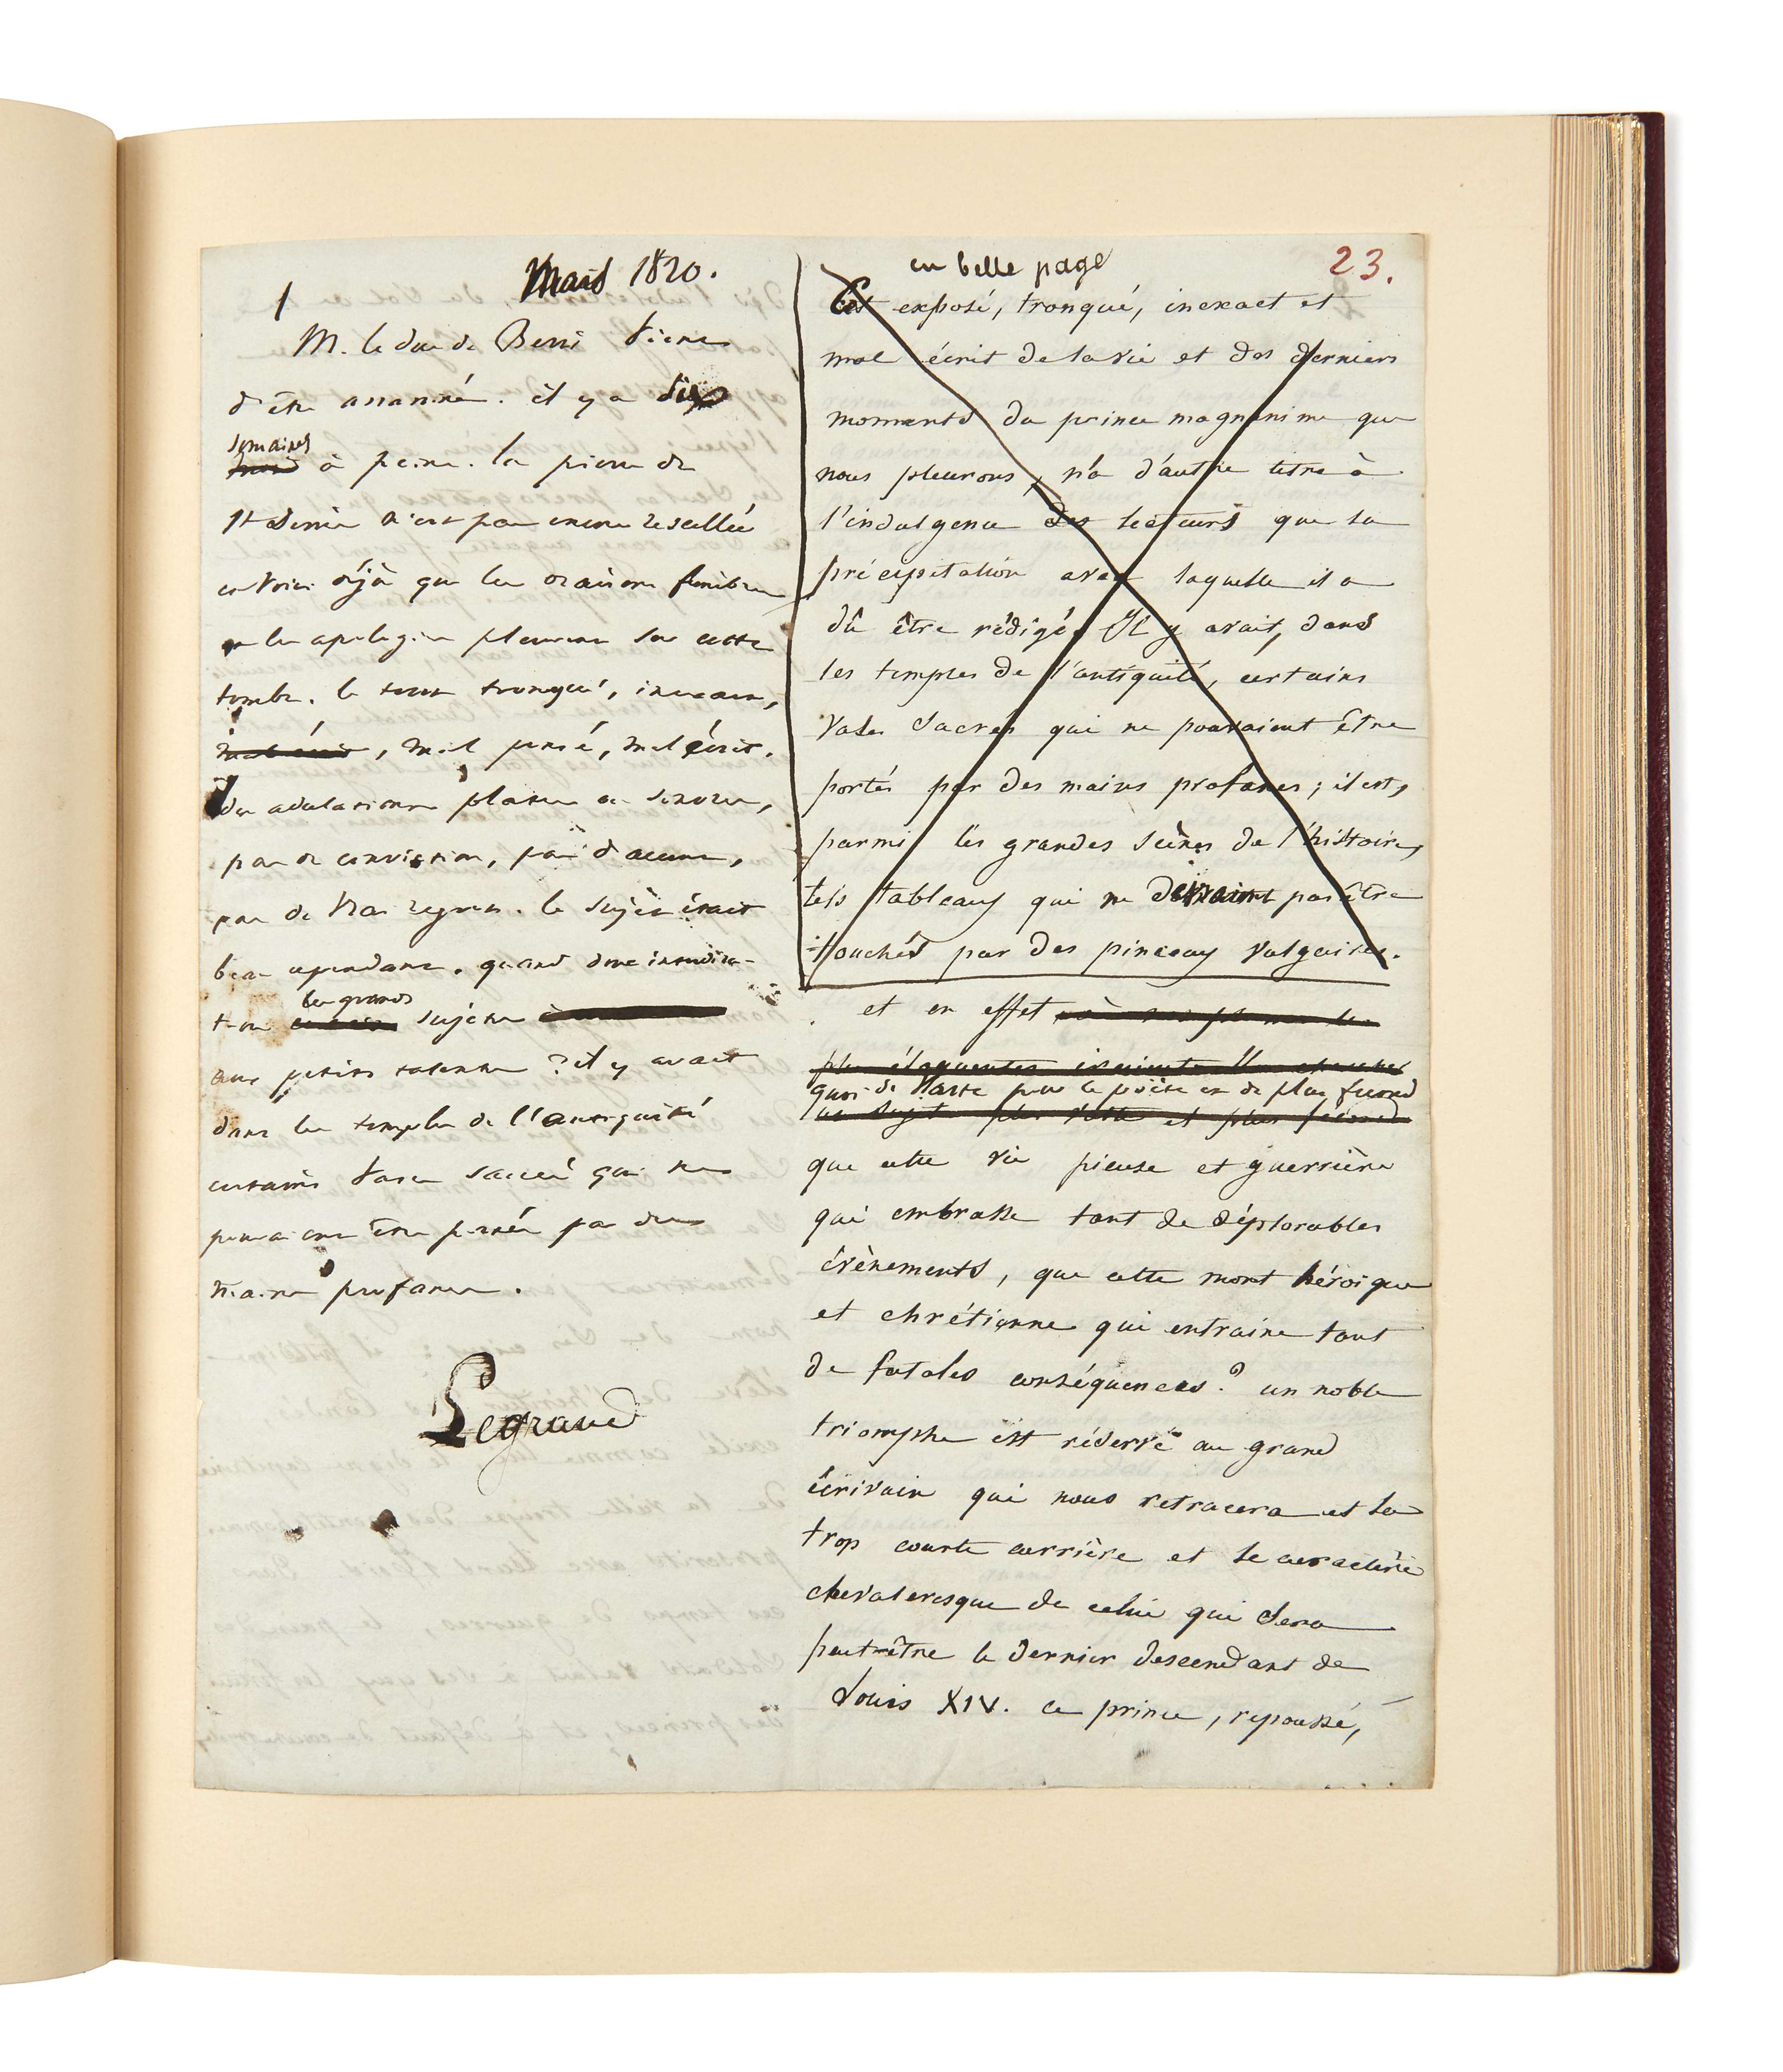 Mars 1820.
1
M. le duc de Berri vient
d'être assassiné. il y a six
semaines à peine. la pierre de
St Denis n'est pas encore rescellée
et voici déjà que les oraisons funèbres
et les apologies pleuvent sur cette
tombe. le tout tronqué, inexact,
mal pensé, mal écrit.
des adulations plates et sonores,
pas de conviction, pas d'accent,
pas de vrai regret. le sujet était
beau cependant. quand donc interdira-
t-on les grands sujets
aux petits talents ? il y avait
dans les temples de l'antiquité
certains vases sacrés qui ne
pouvaient être portés par des
mains profanes.
Legrand
en belle page
23.
Cet exposé, tronqué, inexact et
mal écrit de la vie et des derniers
moments du prince magnanime que
nous pleurons, n'a d'autre titre à
l'indulgence des lecteurs que la
précipitation avec laquelle il a
dû être rédigé. Il y avait, dans
les temples de l'antiquité, certains
vases sacrés qui ne pouvaient être
portés par des mains profanes ; il est,
parmi les grandes scènes de l'histoire,
tels tableaux qui ne devraient pas être
touchés par des pinceaux vulgaires.
et en effet
plus éloquentes
quoi de vaste pour le poète et de plus fécond
un sujet plus vaste et plus fécond
que cette vie pieuse et guerrière
qui embrasse tant de déplorables
évènements, que cette mort héroïque
et chrétienne qui entraine tant
de fatales conséquences ? un noble
triomphe est réservé au grand
écrivain qui nous retracera et la
trop courte carrière et le caractère
chevaleresque de celui qui sera
peut-être le dernier descendant de
Louis XIV. ce prince, repoussé,